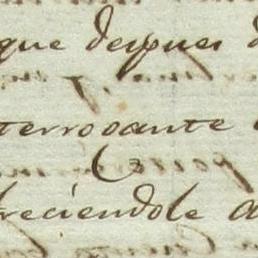 que despues d
terrogante
freciendole a